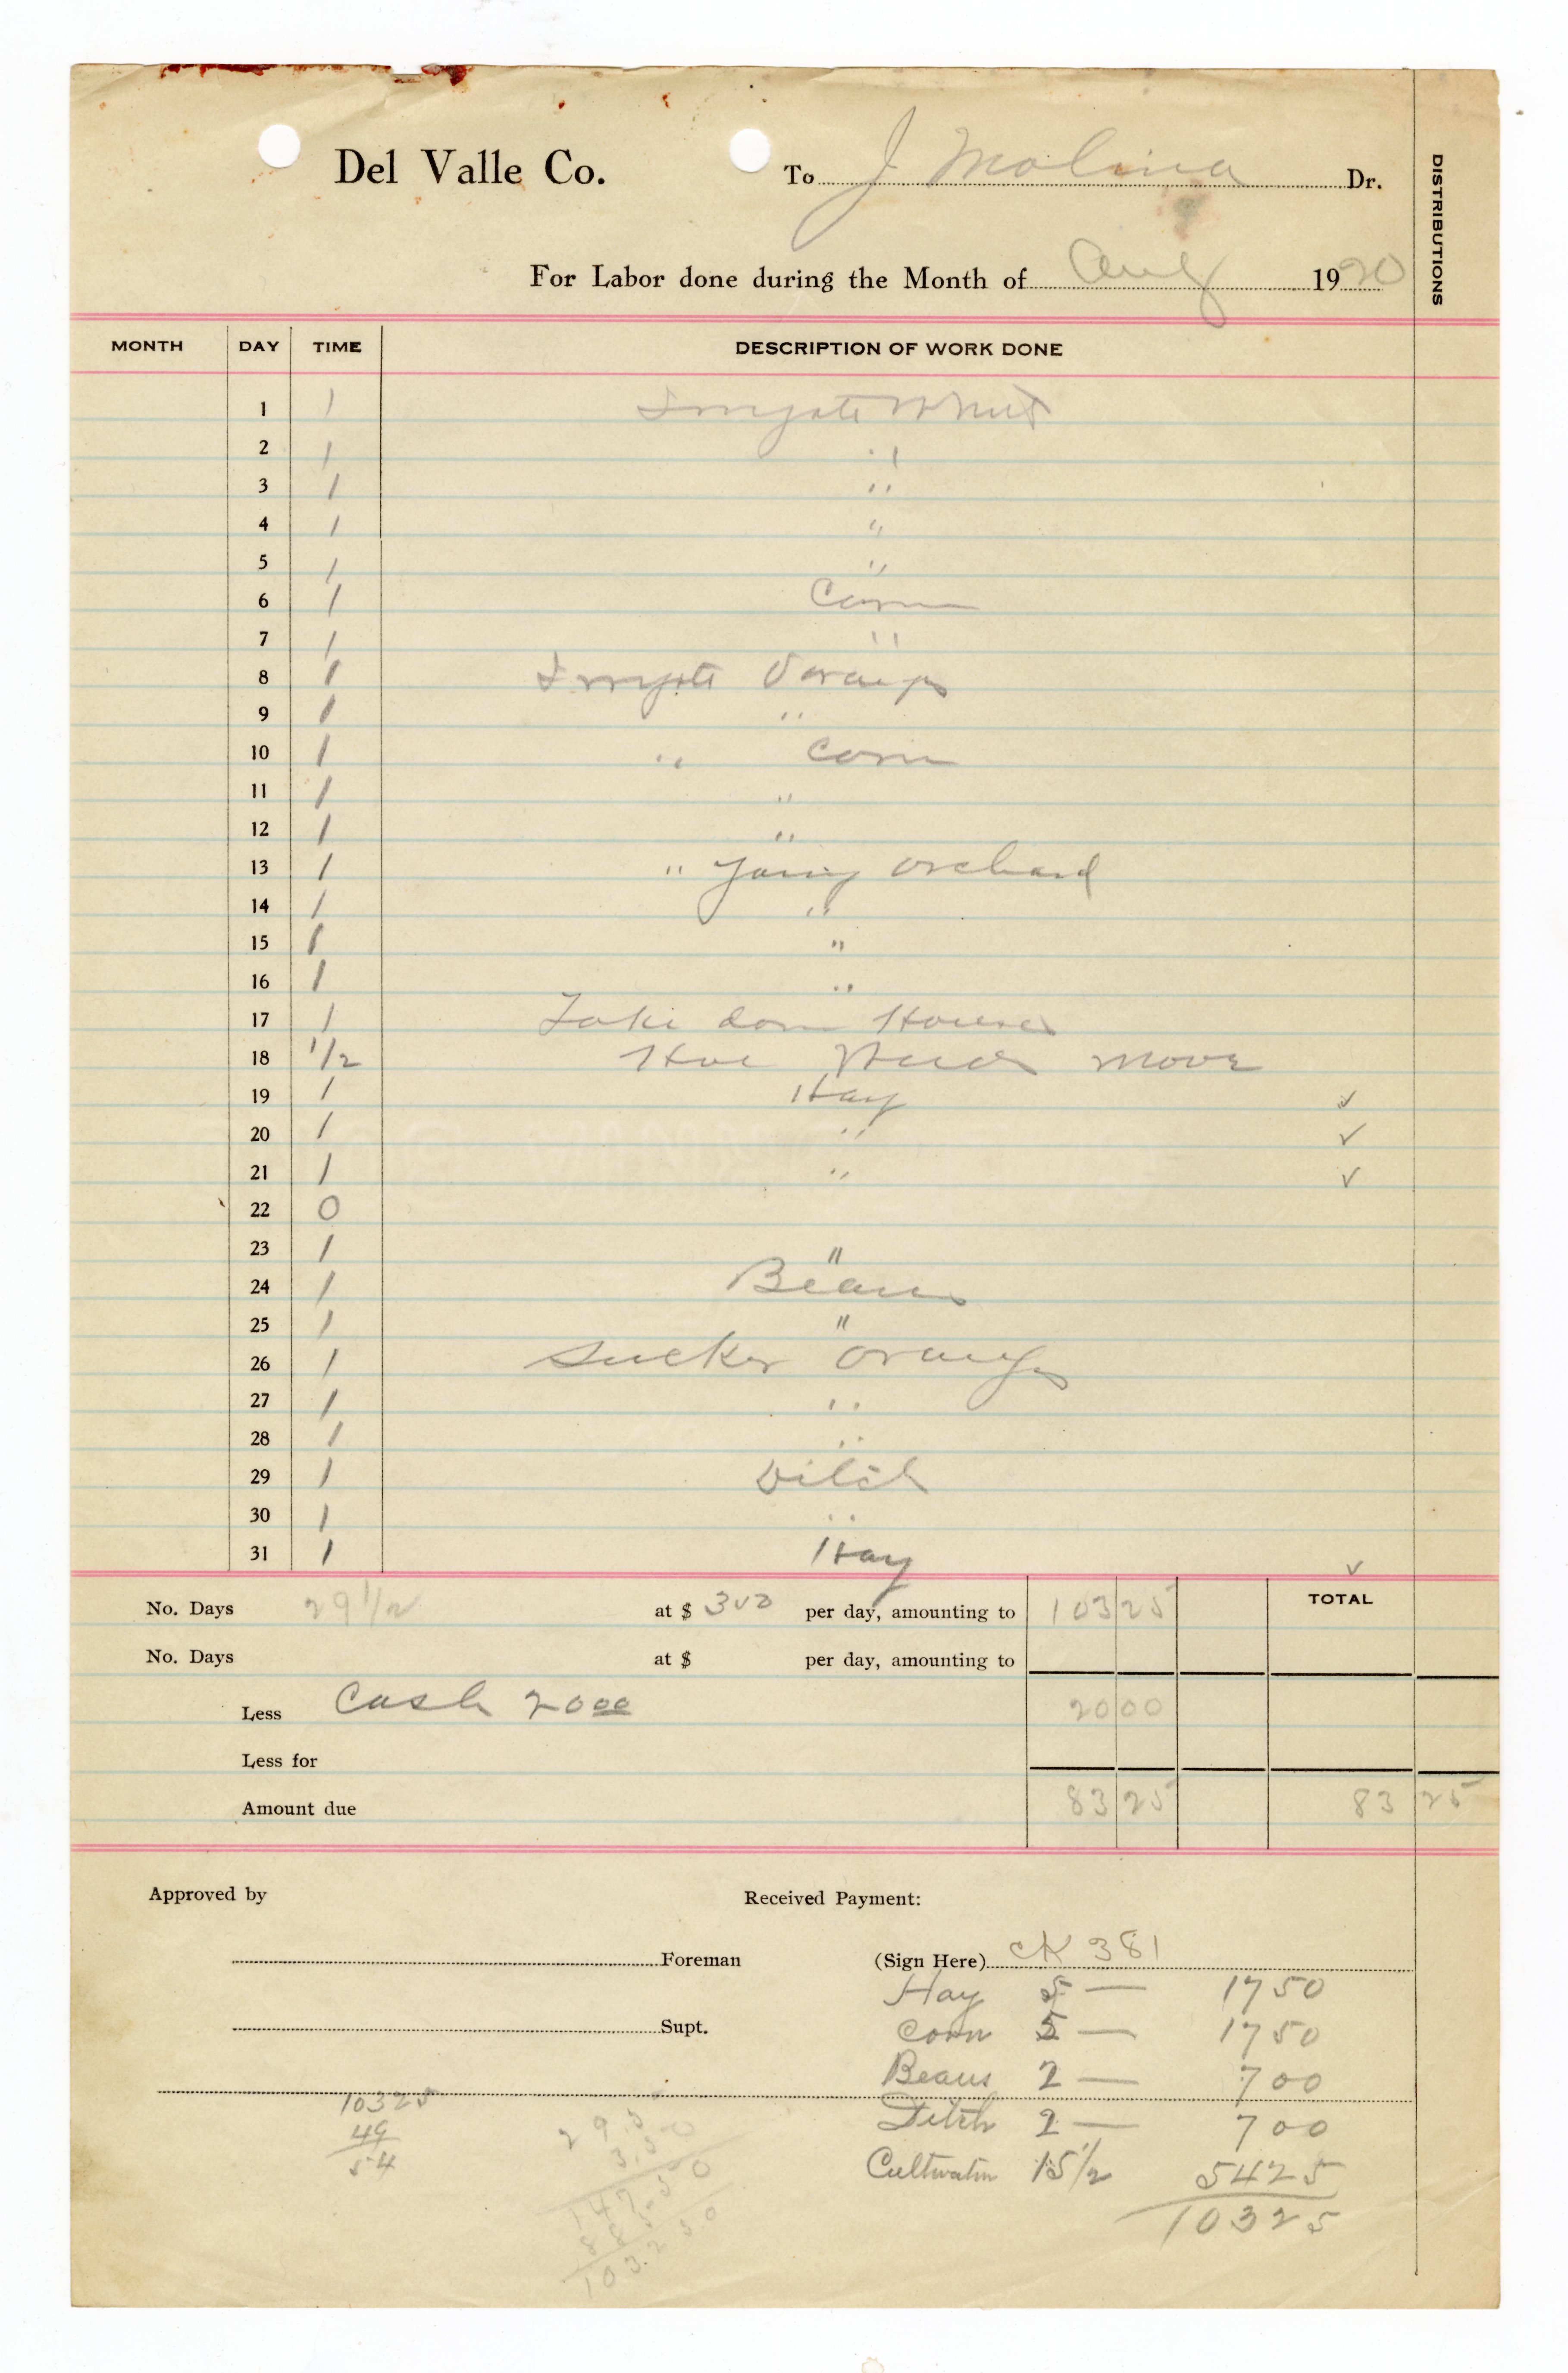 Del Valle Co. To J Molina Dr.
DISTRIBUTIONS
For Labor done during the Month of Aug 1920
MONTH DAY TIME DESCRIPTION OF WORK DONE
1 1 Irrigate
2 1 "
3 1 "
4 1 "
5 1 "
6 1 Corn
7 1 "
8 1 Irrigate Oranges
9 1 "
10 1 " Corn
11 1 "
12 1 "
13 1 " Young Orchard
14 1 "
15 1 "
16 1 "
17 1 Take down House
18 1/2 Hoe move
19 1 Hay ✓
20 1 " ✓
21 1 " ✓
22 0
23 1 "
24 1 Beans
25 1 "
26 1 Sucker Oranges
27 1 "
28 1 "
29 1 Ditch
30 1 "
31 1 Hay ✓
No. Days 29 1/2 at $ 350 per day, amounting to 103 25 TOTAL
No. Days at $ per day, amounting to
Less Cash 20 00 20 00
Less for
Amount due 83 25 83 25
Approved by Received Payment:
Foreman (Sign Here) CK 381
Hay 5 — 17 50
Supt. Corn 5 — 17 50
Beans 2 — 7 00
103 25 Ditch 2 — 7 00
49 Cultivation 15 1/2 54 25
54 103 25
29.5
3.50
147 50
88 5
103.2 50